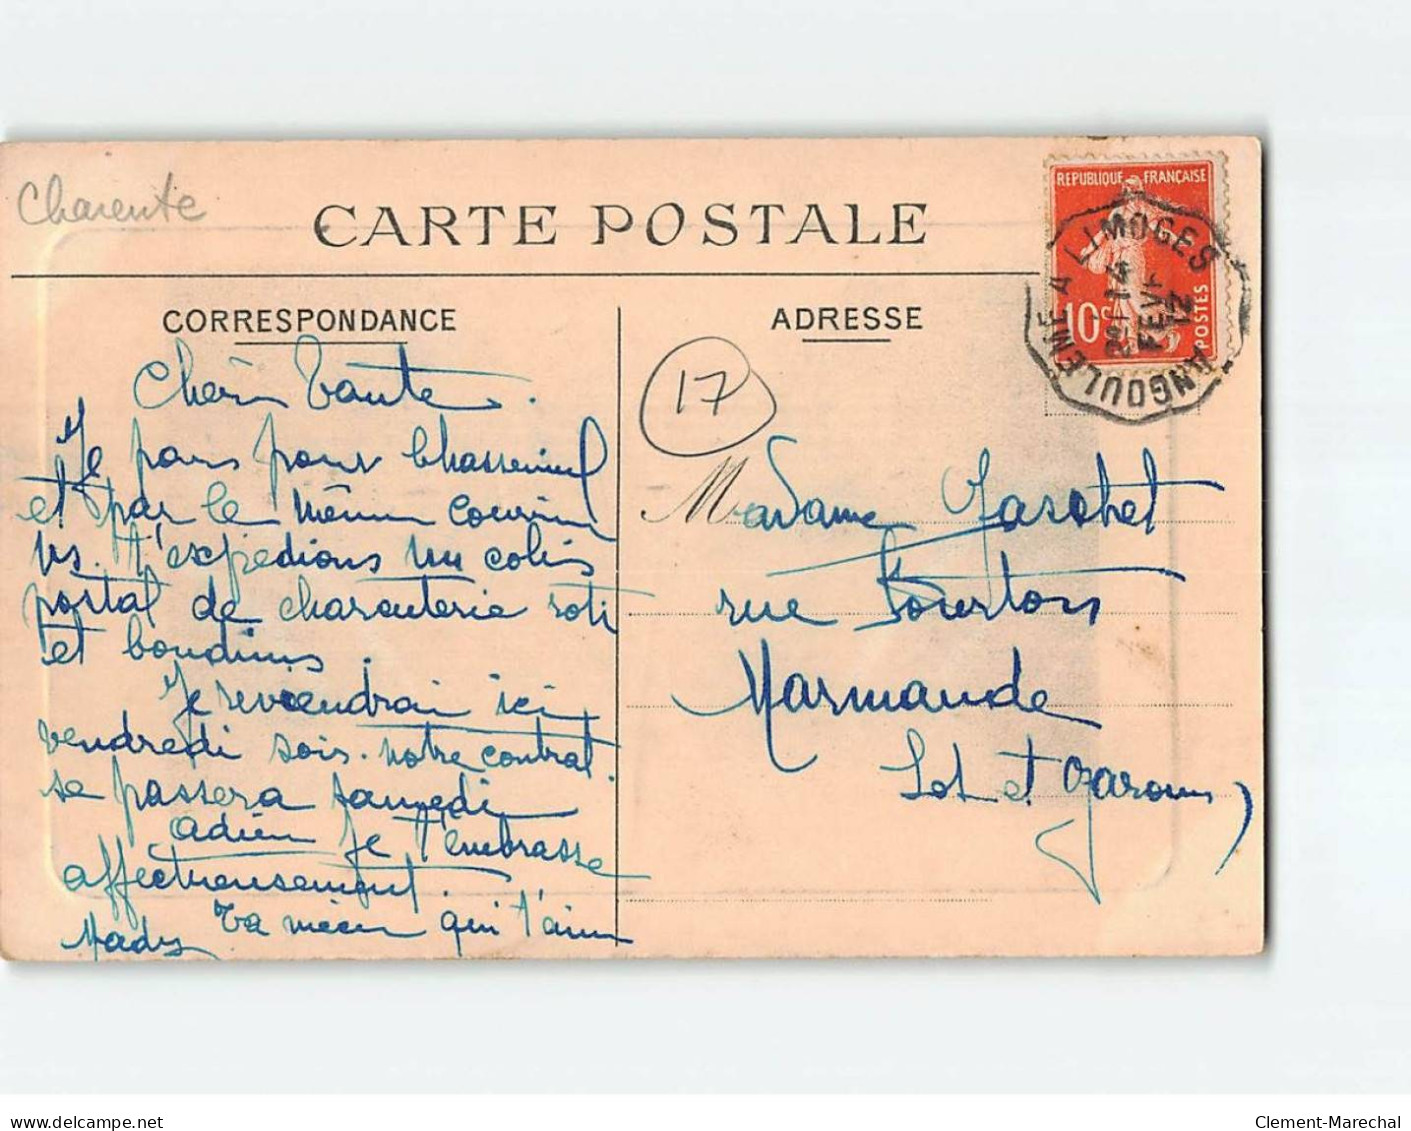 Charente
CARTE POSTALE
CORRESPONDANCE
ADRESSE
REPUBLIQUE FRANÇAISE
10c
POSTES
ANGOULEME A LIMOGES
2° 14
FEVR
12
17
Chère Tante.
Je pars pour Chasseneuil
et par le même courrier
ns. t'expédions un colis
postal de charcuterie roti
et boudins.
Je reviendrai ici
vendredi soir. notre contrat
se passera samedi
adieu je t'embrasse
affectueusement.
Ta nièce qui t'aime
Mady
Madame
rue
Marmande
Lot et Garonne
Clement-Marechal
delcampe.net